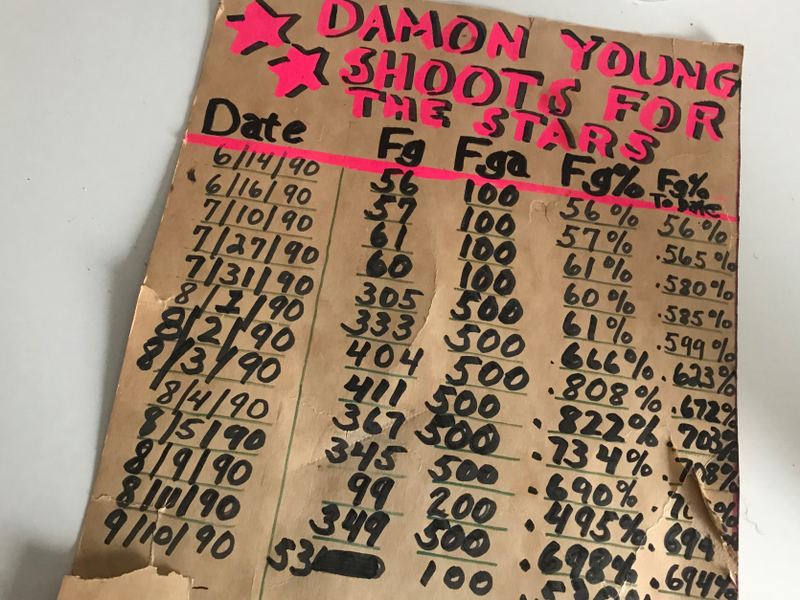 DAMON YOUNG
SHOOTS FOR
THE STARS
Date Fg Fga Fg% Fg% To Date
6/14/90 56 100 56% 56%
6/16/90 57 100 57% .565%
7/10/90 61 100 61% .580%
7/27/90 60 100 60% .585%
7/31/90 305 500 61% .599%
8/1/90 333 500 .666% .623%
8/2/90 404 500 .808% .672%
8/3/90 411 500 .822% .703%
8/4/90 367 500 .734% .708%
8/5/90 345 500 690%
8/9/90 99 200 .495% .694
8/11/90 349 500 .698% .694%
9/10/90 53 100